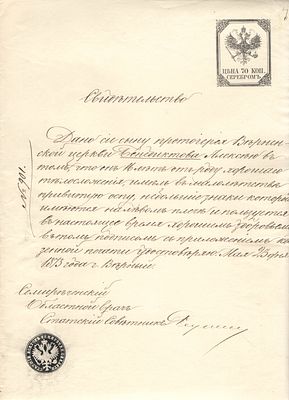 ЦѢНА 70 КОП.
СЕРЕБРОМЪ.
Свидѣтельство
Дано сіе сыну протоіерея Вѣрнен-
ской церкви Алексѣю въ
томъ, что онъ лѣтъ отъ роду, хорошаго
тѣлосложенія, имѣлъ въ малолѣтствѣ
привитую оспу, небольшіе знаки которой
имѣются на лѣвомъ плечѣ и пользуется
въ настоящее время хорошимъ здоровьемъ
въ томъ подписомъ съ приложеніемъ ка-
зенной печати удостовѣряю. Мая дня
1873 года г. Вѣрный.
Семирѣченскій
Областной Врачъ
Статскій Совѣтникъ